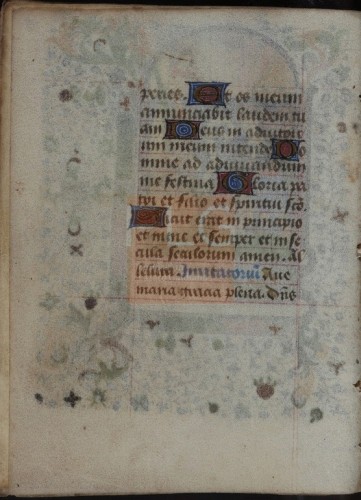 peries. Et os meum
annunciabit laudem tu
am Deus in adiutori
um meum intende Do
mine ad adiuuandum
me festina Gloria pa
tri et filio et spiritui sco.
Sicut erat in principio
et nunc et semper et in se
cula seculorum amen. Al
leluia. Inuitatoriu Aue
maria gracia plena. Dns